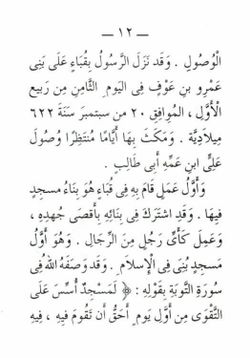 — ١٢ —
الْوُصُولِ . وَقَد نَزَلَ الرَّسُولُ بِقُبَاءَ عَلَى بَنِى
عَمْرِو بنِ عَوْفٍ فِى اليَومِ الثَّامِنِ مِن رَبِيعِ
الْأَوَّلِ ، المُوَافِقِ ٢٠ من سبتمبر سَنَةَ ٦٢٢
مِيلَادِيَّة . وَمَكَثَ بِهَا أَيَّامًا مُنتَظِرًا وُصُولَ
عَلِىِّ ابنِ عَمِّهِ أَبِى طَالِبٍ .
وَأَوَّلُ عَمَلٍ قَامَ بِهِ فِى قُبَاءَ هُوَ بِنَاءُ مسجدٍ
فِيهَا . وَقَدِ اشتَرَكَ فِى بِنَائِهِ بِأَقصَى جُهدِهِ ،
وَعَمِلَ كَأَىِّ رَجُلٍ مِنَ الرِّجَالِ . وَهُوَ أَوَّلُ
مَسجِدٍ بُنِىَ فِى الإِسلَامِ . وَقَد وَصَفَهُ اللهُ فِى
سُورَةِ التَّوْبَةِ بِقَوْلِهِ : ﴿ لَمَسْجِدٌ أُسِّسَ عَلَى
التَّقْوَى مِن أَوَّلِ يَومٍ أَحَقُّ أَن تَقُومَ فِيهِ ، فِيهِ